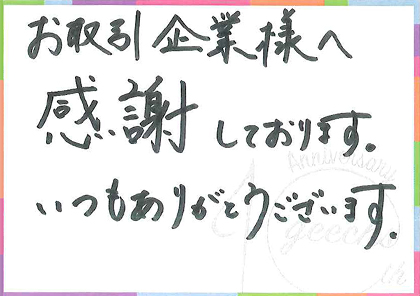 お取引企業様へ
感謝しております。
いつもありがとうございます。
Anniversary
10
geechs
th